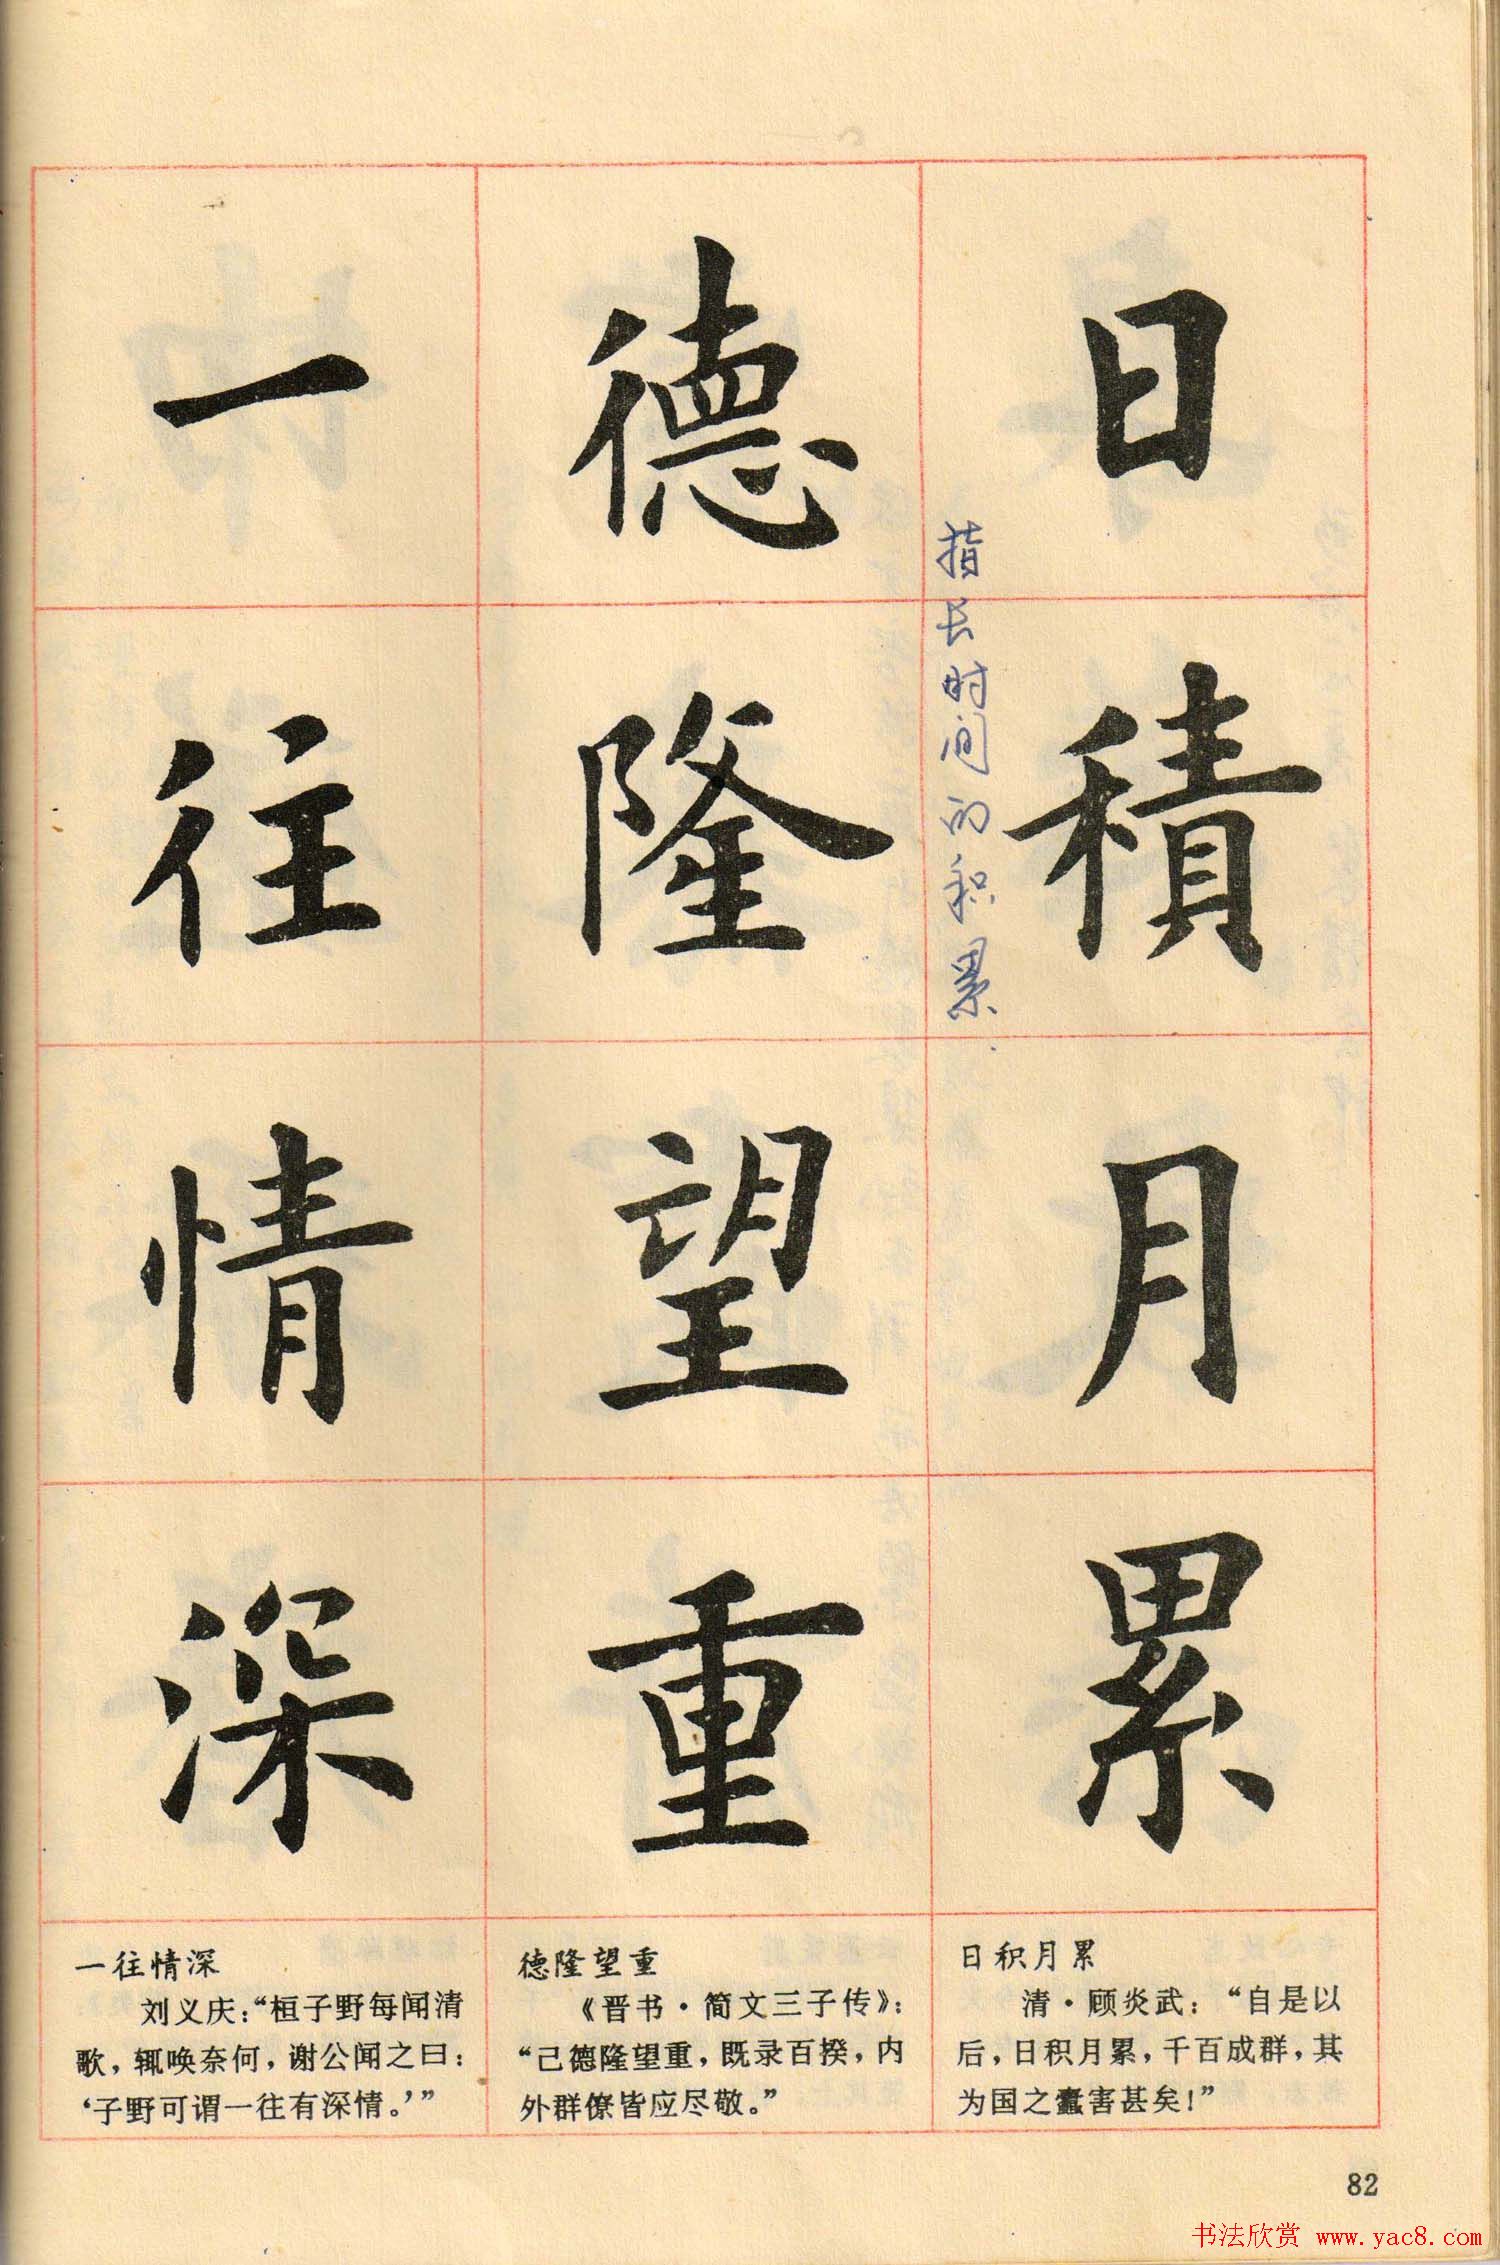 日積月累
指长时间的积累
德隆望重
一往情深
日积月累
清·顾炎武：“自是以
后，日积月累，千百成群，其
为国之蠹害甚矣！”
德隆望重
《晋书·简文三子传》：
“己德隆望重，既录百揆，内
外群僚皆应尽敬。”
一往情深
刘义庆：“桓子野每闻清
歌，辄唤奈何，谢公闻之曰：
‘子野可谓一往有深情。’”
82
书法欣赏 www.yac8.com